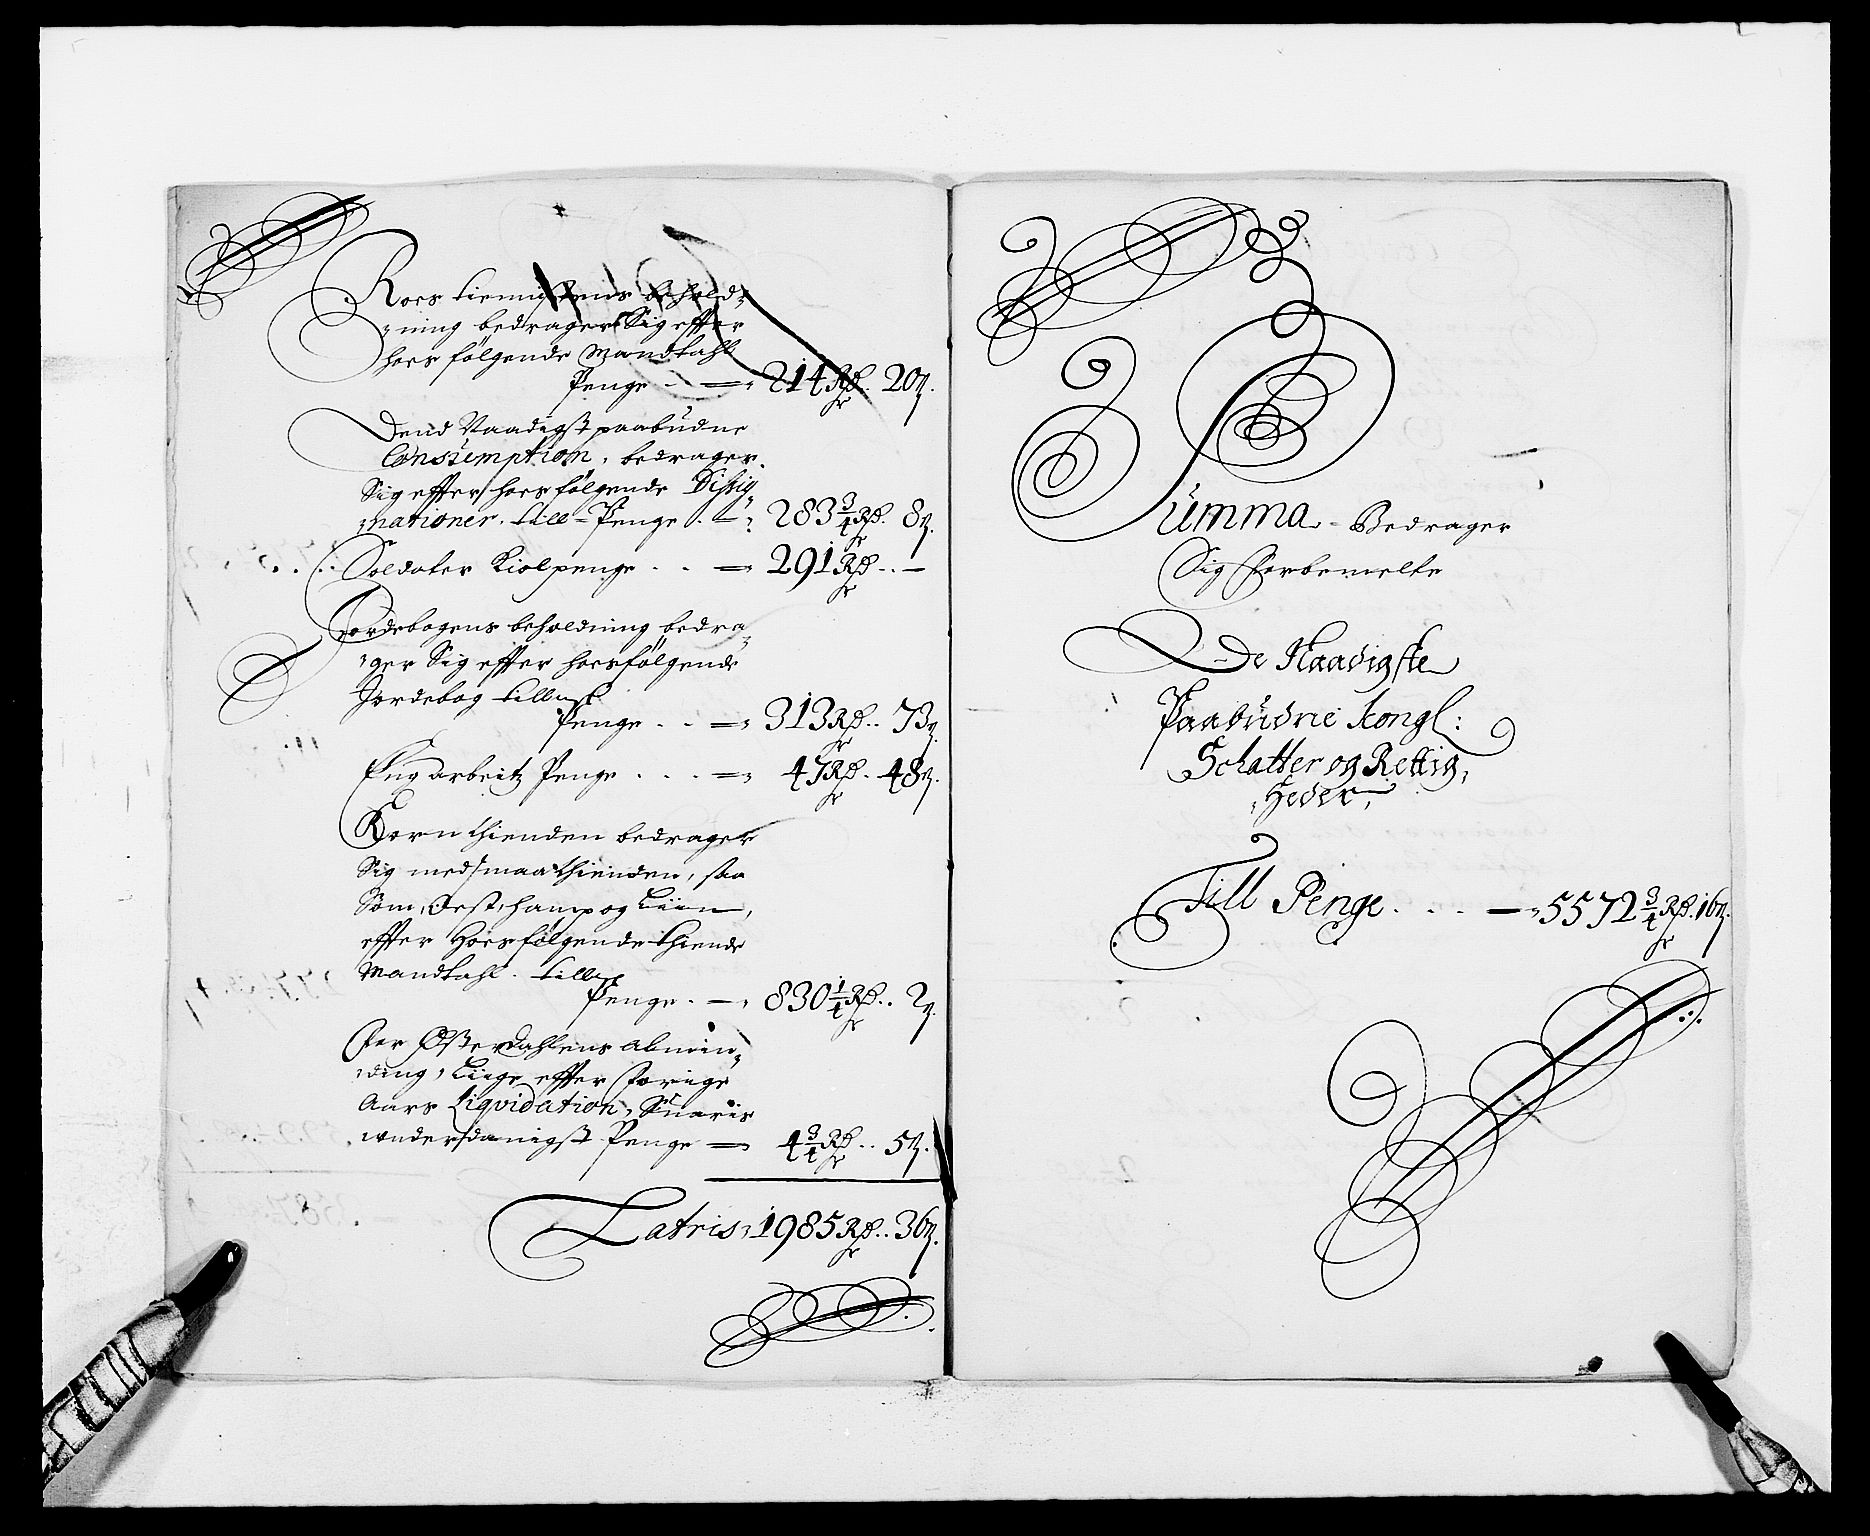 Roes tiennistens behold-
ning bedrager Sig effter
hoes følgende Mandtahl
Penge - = 214 Rd. 20 ß.
Dend Naadigst paabudne
Consumption, bedrager
Sig effter hoes følgende Dissig
nationer. till Penge . - 283 3/4 Rd. 8 ß.
Soldater Kiolpenge . . = 291 Rd. . -
Jordebogens beholdning bedra
ger Sig effter hoesfølgende
Jordebog till
Penge . . = 313 Rd. . 73 ß.
Eng arbeitz Penge . . . = 47 Rd. 48 ß.
Korn thienden bedrager
Sig med smaa thienden, saa
Som, Oest, hamp og Liin,
effter Hoesfølgende thiende
Mandtahl. till
Penge. - 830 1/4 Rd. . 2 ß.
For Østerdahlens almin,
ding, Liige effter forrige
Aars Liqvidation, Suaris
underdanigst Penge = 4 3/4 Rd. . 5 ß.
Latris, 1985 Rd. . 36 ß.
Summa. - Bedrager
Sig forbemelte
De Naadigste
Paabudne kongl:
Schatter og Rettig,
Heder,
Till Penge. . . . - 5572 3/4 Rd. 16 ß.